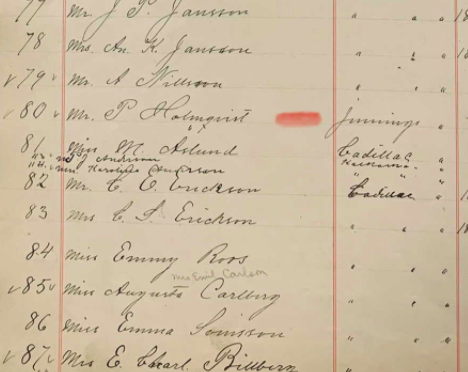 77 Mr J. P. Jansson " " " 18
78 Mrs. An. K. Jansson " " " 18
√79√ Mr. A Nillson " " "
√80√ Mr. P Holmqvist Jennings " "
81 Miss M. Aslund Cadillac "
Anderson "
Mrs. Anderson " " "
82 Mr. C. O. Erickson Cadillac " 18
83 Mrs C. S. Erickson " " " 18
84 Miss Emmy Roos " " "
Mrs Emil Carlson
√85√ Miss Augusta Carlberg " " "
86 Miss Emma Jonsson " " "
√87√ Mrs E. Charl. Billbern " " "